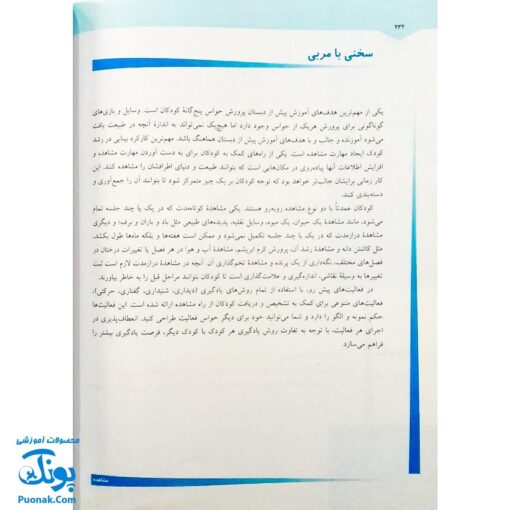 ۲۳۲
سخنی با مربی
یکی از مهم‌ترین هدف‌های آموزش پیش از دبستان پرورش حواس پنج‌گانهٔ کودکان است. وسایل و بازی‌های
گوناگونی برای پرورش هریک از حواس وجود دارد اما هیچ‌یک نمی‌تواند به اندازهٔ آنچه در طبیعت یافت
می‌شود آموزنده و جالب و با هدف‌های آموزش پیش از دبستان هماهنگ باشد. مهم‌ترین کارکرد بینایی در رشد
کودک ایجاد مهارت مشاهده است. یکی از راه‌های کمک به کودکان برای به دست آوردن مهارت مشاهده و
افزایش اطلاعات آنها پیاده‌روی در مکان‌هایی است که بتوانند طبیعت و دنیای اطرافشان را مشاهده کنند. این
کار زمانی برایشان جالب‌تر خواهد بود که توجه کودکان بر یک چیز متمرکز شود تا بتوانند آن را جمع‌آوری و
دسته‌بندی کنند.
کودکان عمدتاً با دو نوع مشاهده روبه‌رو هستند. یکی مشاهدهٔ کوتاه‌مدت که در یک یا چند جلسه تمام
می‌شود، مانند مشاهدهٔ یک حیوان، یک میوه، وسایل نقلیه، پدیده‌های طبیعی مثل باد و باران و برف؛ و دیگری
مشاهدهٔ درازمدت که در یک یا چند جلسه تکمیل نمی‌شود و ممکن است هفته‌ها و بلکه ماه‌ها طول بکشد،
مثل کاشتن دانه و مشاهدهٔ رشد آن، پرورش کرم ابریشم، مشاهدهٔ آب و هوا در هر فصل یا تغییرات درختان در
فصل‌های مختلف، نگه‌داری از یک پرنده و مشاهدهٔ تخم‌گذاری آن. آنچه در مشاهدهٔ درازمدت لازم است ثبت
تغییرها به وسیلهٔ نقاشی، اندازه‌گیری و علامت‌گذاری است تا کودکان بتوانند مراحل قبل را به خاطر بیاورند.
در فعالیت‌های پیش رو، با استفاده از تمام روش‌های یادگیری (دیداری، شنیداری، گفتاری، حرکتی)،
فعالیت‌های متنوعی برای کمک به تشخیص و دریافت کودکان از راه مشاهده ارائه شده است. این فعالیت‌ها
حکم نمونه و الگو را دارد و شما می‌توانید خود برای دیگر حواس فعالیت طراحی کنید. انعطاف‌پذیری در
اجرای هر فعالیت، با توجه به تفاوت روش یادگیری هر کودک با کودک دیگر، فرصت یادگیری بیشتر را
فراهم می‌سازد.
مشاهده
محصولات آموزشی
پونک
Puonak.Com